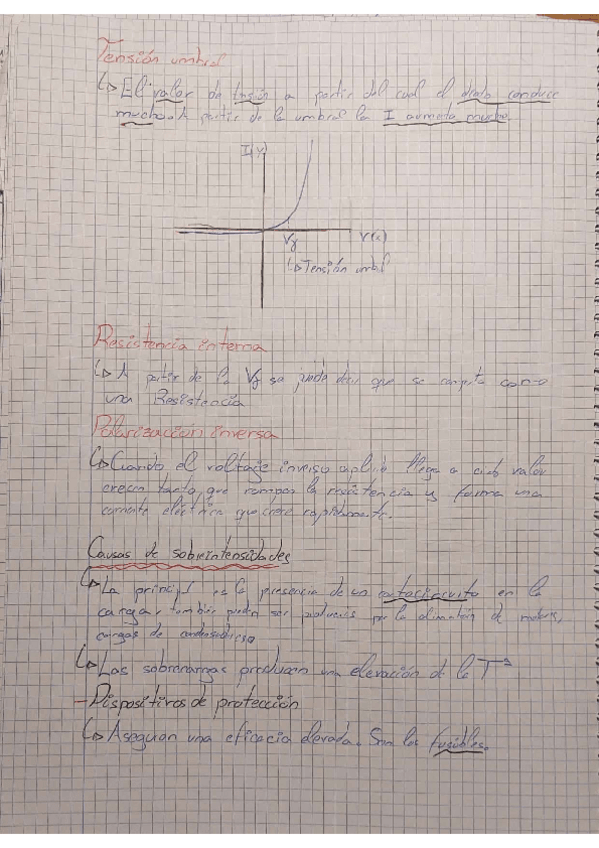 Tensión umbral
↳ El valor de tensión a partir del cual el diodo conduce
mucho. A partir de la umbral la I aumenta mucho.
I(y)
Vγ
V(x)
↳ Tensión umbral
Resistencia interna
↳ A partir de la Vγ se puede decir que se comporta como
una Resistencia
Polarización inversa
↳ Cuando el voltage inverso aplic llega a cierto valor
crecen tanto, que rompen la resistencia y forma una
corriente eléctrica que crece rapidamente.
Causas de sobreintensidades
↳ La principal es la presencia de un cortocircuito en la
carga, también pueden ser por la de motores,
cargas de
↳ Las sobrecargas producen una elevación de la Tª
- Dispositivos de protección
↳ Aseguran una eficacia elevada. Son los fusibles.